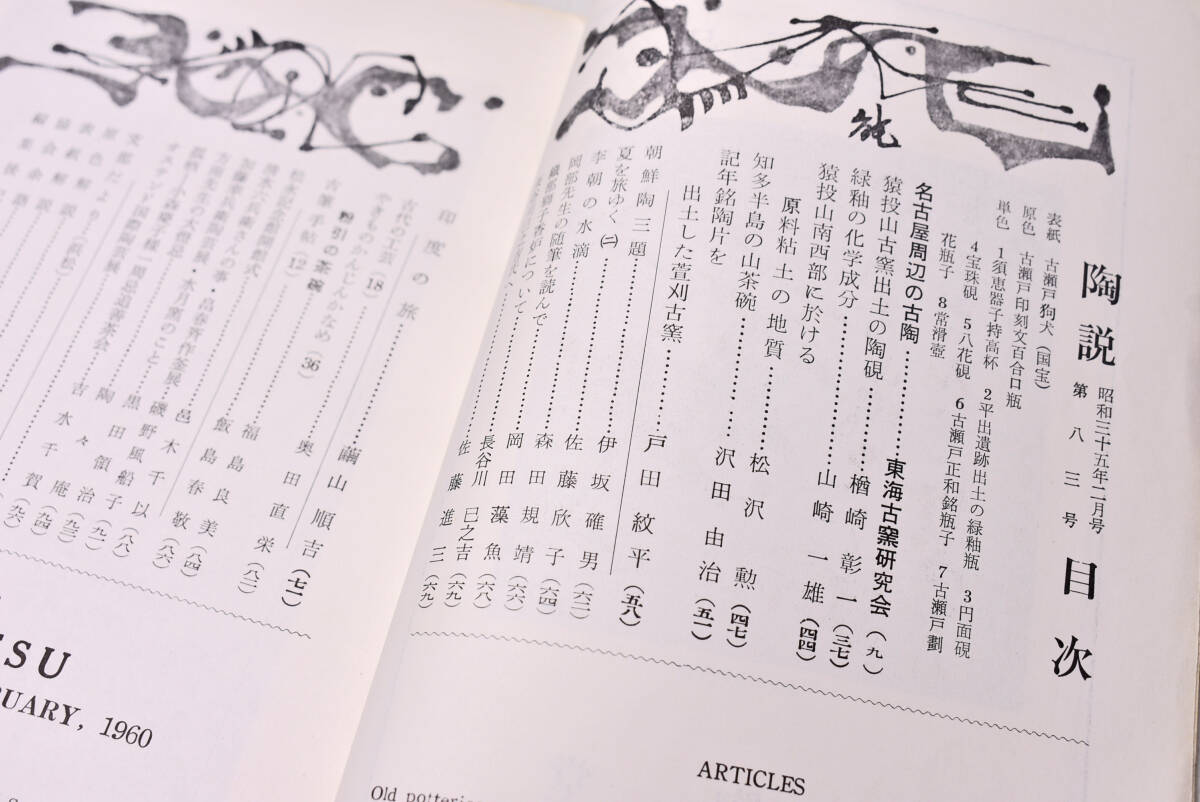 陶説 第八三号 目次
昭和三十五年二月号
表紙 古瀬戸狗犬(国宝)
原色 古瀬戸印刻文百合口瓶
単色 1須恵器子持高杯 2平出遺跡出土の緑釉瓶 3円面硯
4宝珠硯 5八花硯 6古瀬戸正和銘瓶子 7古瀬戸劃
花瓶子 8常滑壺
名古屋周辺の古陶……東海古窯研究会(九)
猿投山古窯出土の陶硯……楢崎彰一(三七)
緑釉の化学成分……山崎一雄(四四)
猿投山南西部に於ける
原料粘土の地質……松沢勲(四七)
知多半島の山茶碗……沢田由治(五一)
記年銘陶片を
出土した萱刈古窯
朝鮮陶三題……戸田紋平(五八)
夏を旅ゆく(二)……伊坂確男(六二)
李朝の水滴……佐藤欣子(六四)
岡部先生の随筆を読んで……森田規靖(六六)
織部獅子香炉について……岡田藻魚(六八)
長谷川巳之吉(六九)
佐藤進三(六九)
印度の旅……繭山順吉(七一)
古代の工芸(18)……奥田直栄(八二)
やきものかんじんちめ(36)
粉引の茶碗……福島良美(八四)
古筆手帖(12)……飯島春敬
松永記念館開館式
邑木千以(八六)
磯野風船子(八八)
黒田領治(九一)
陶々庵(九三)
吉水千賀(九四)
支部だより(浜松)
原色解説
表紙解説
協会余録
編集後語
SU
RUARY, 1960
ARTICLES
Old potteries